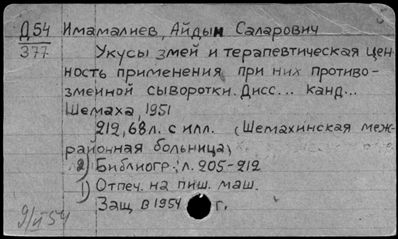 Д54 Имамалиев, Айдын Саларович
377
Укусы змей и терапевтическая цен-
ность применения при них противо-
змеиной сыворотки. Дисс... канд...
Шемаха, 1951
212, 68 л. с илл. (Шемахинская меж-
районная больница)
2) Библиогр.: л. 205-212
1) Отпеч. на пиш. маш.
Защ в 1954 г.
9/II 54